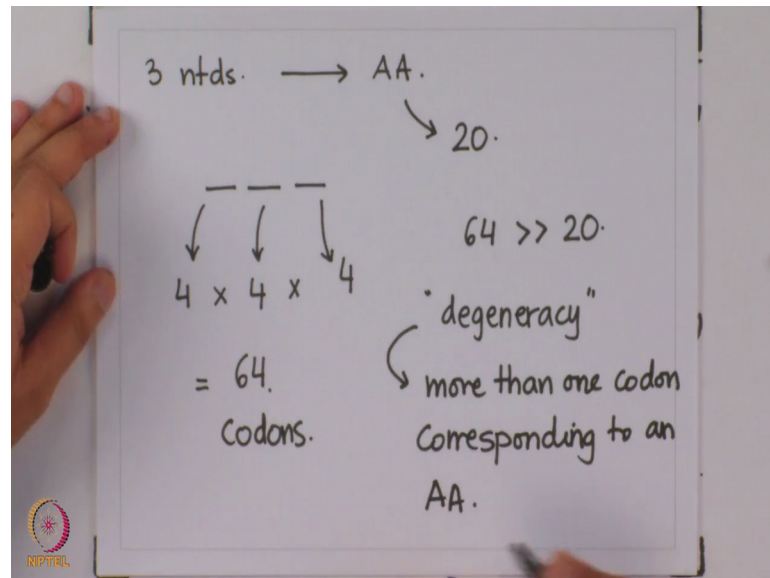 3 ntds. ⟶ AA.
20.
4 x 4 x 4
= 64.
Codons.
64 >> 20.
"degeneracy"
more than one codon
Corresponding to an
AA.
NPTEL